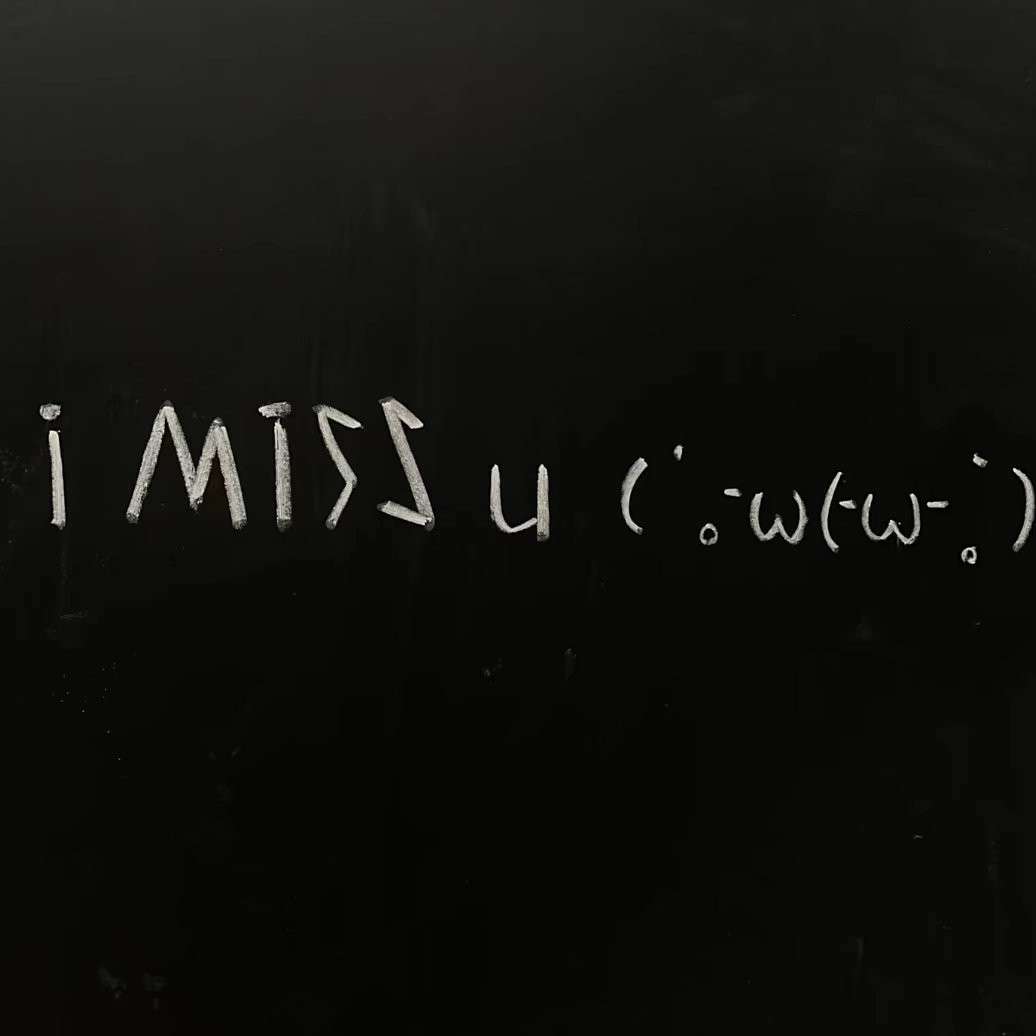 i MISS u (˙.-ω(-ω-.˙)